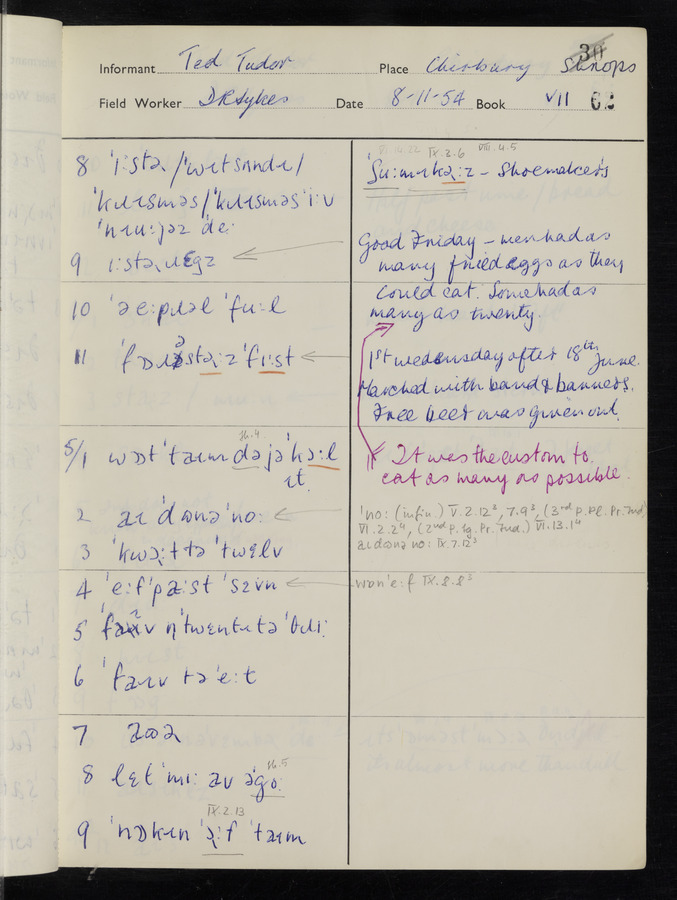 30
Informant Ted Tudor Place Chirbury Shrops
Field Worker D R Sykes Date 8-11-54 Book VII 62
8 ˈiːstəɹ /ˈwɪtsʌndɪ/
ˈkɹɪsməs/ˈkɹɪsməs ˈiːv
ˈnɪuːjəz deː
9 iːstəɹ ɛgz
10 ˈəeːpɹəl ˈfuːl
11
5/1 wɒt ˈtaɪm də jə ˈkəːl
ɪt
2 aɪ dənə ˈnoː
3 ˈkwəːt tə ˈtwɛlv
4 ˈeːf ˈpaːst ˈsɛvn
5 ˈfaɪv n̩ ˈtwɛntɪ tə ˈθɹiː
6 ˈfaɪv tə ˈeːt
7
8 lɛt ˈmiː av əgoː
9 ˈnɒkɪn ˈəːf ˈtaɪm
VI.14.22 IX.2.6 VIII.4.5
ˈʃuːmɛkəːz – Shoemakers
Good Friday – men had as
many fried eggs as they
could eat. Some had as
many as twenty.
1st wednesday after 18th June.
Marched with band & banners.
Free beer was given out.
It was the custom to
eat as many as possible.
sh.4
ˈnoː (infin.) V.2.12³, 7.9³, (3rd p. pl. Pr. Ind)
VI.2.2⁴, (2nd p. sg. Pr. Ind.) VI.13.1⁴
aɪ dənə noː IX.7.12³
wən ˈeːf IX.8.8³
sh.5
IX.2.13